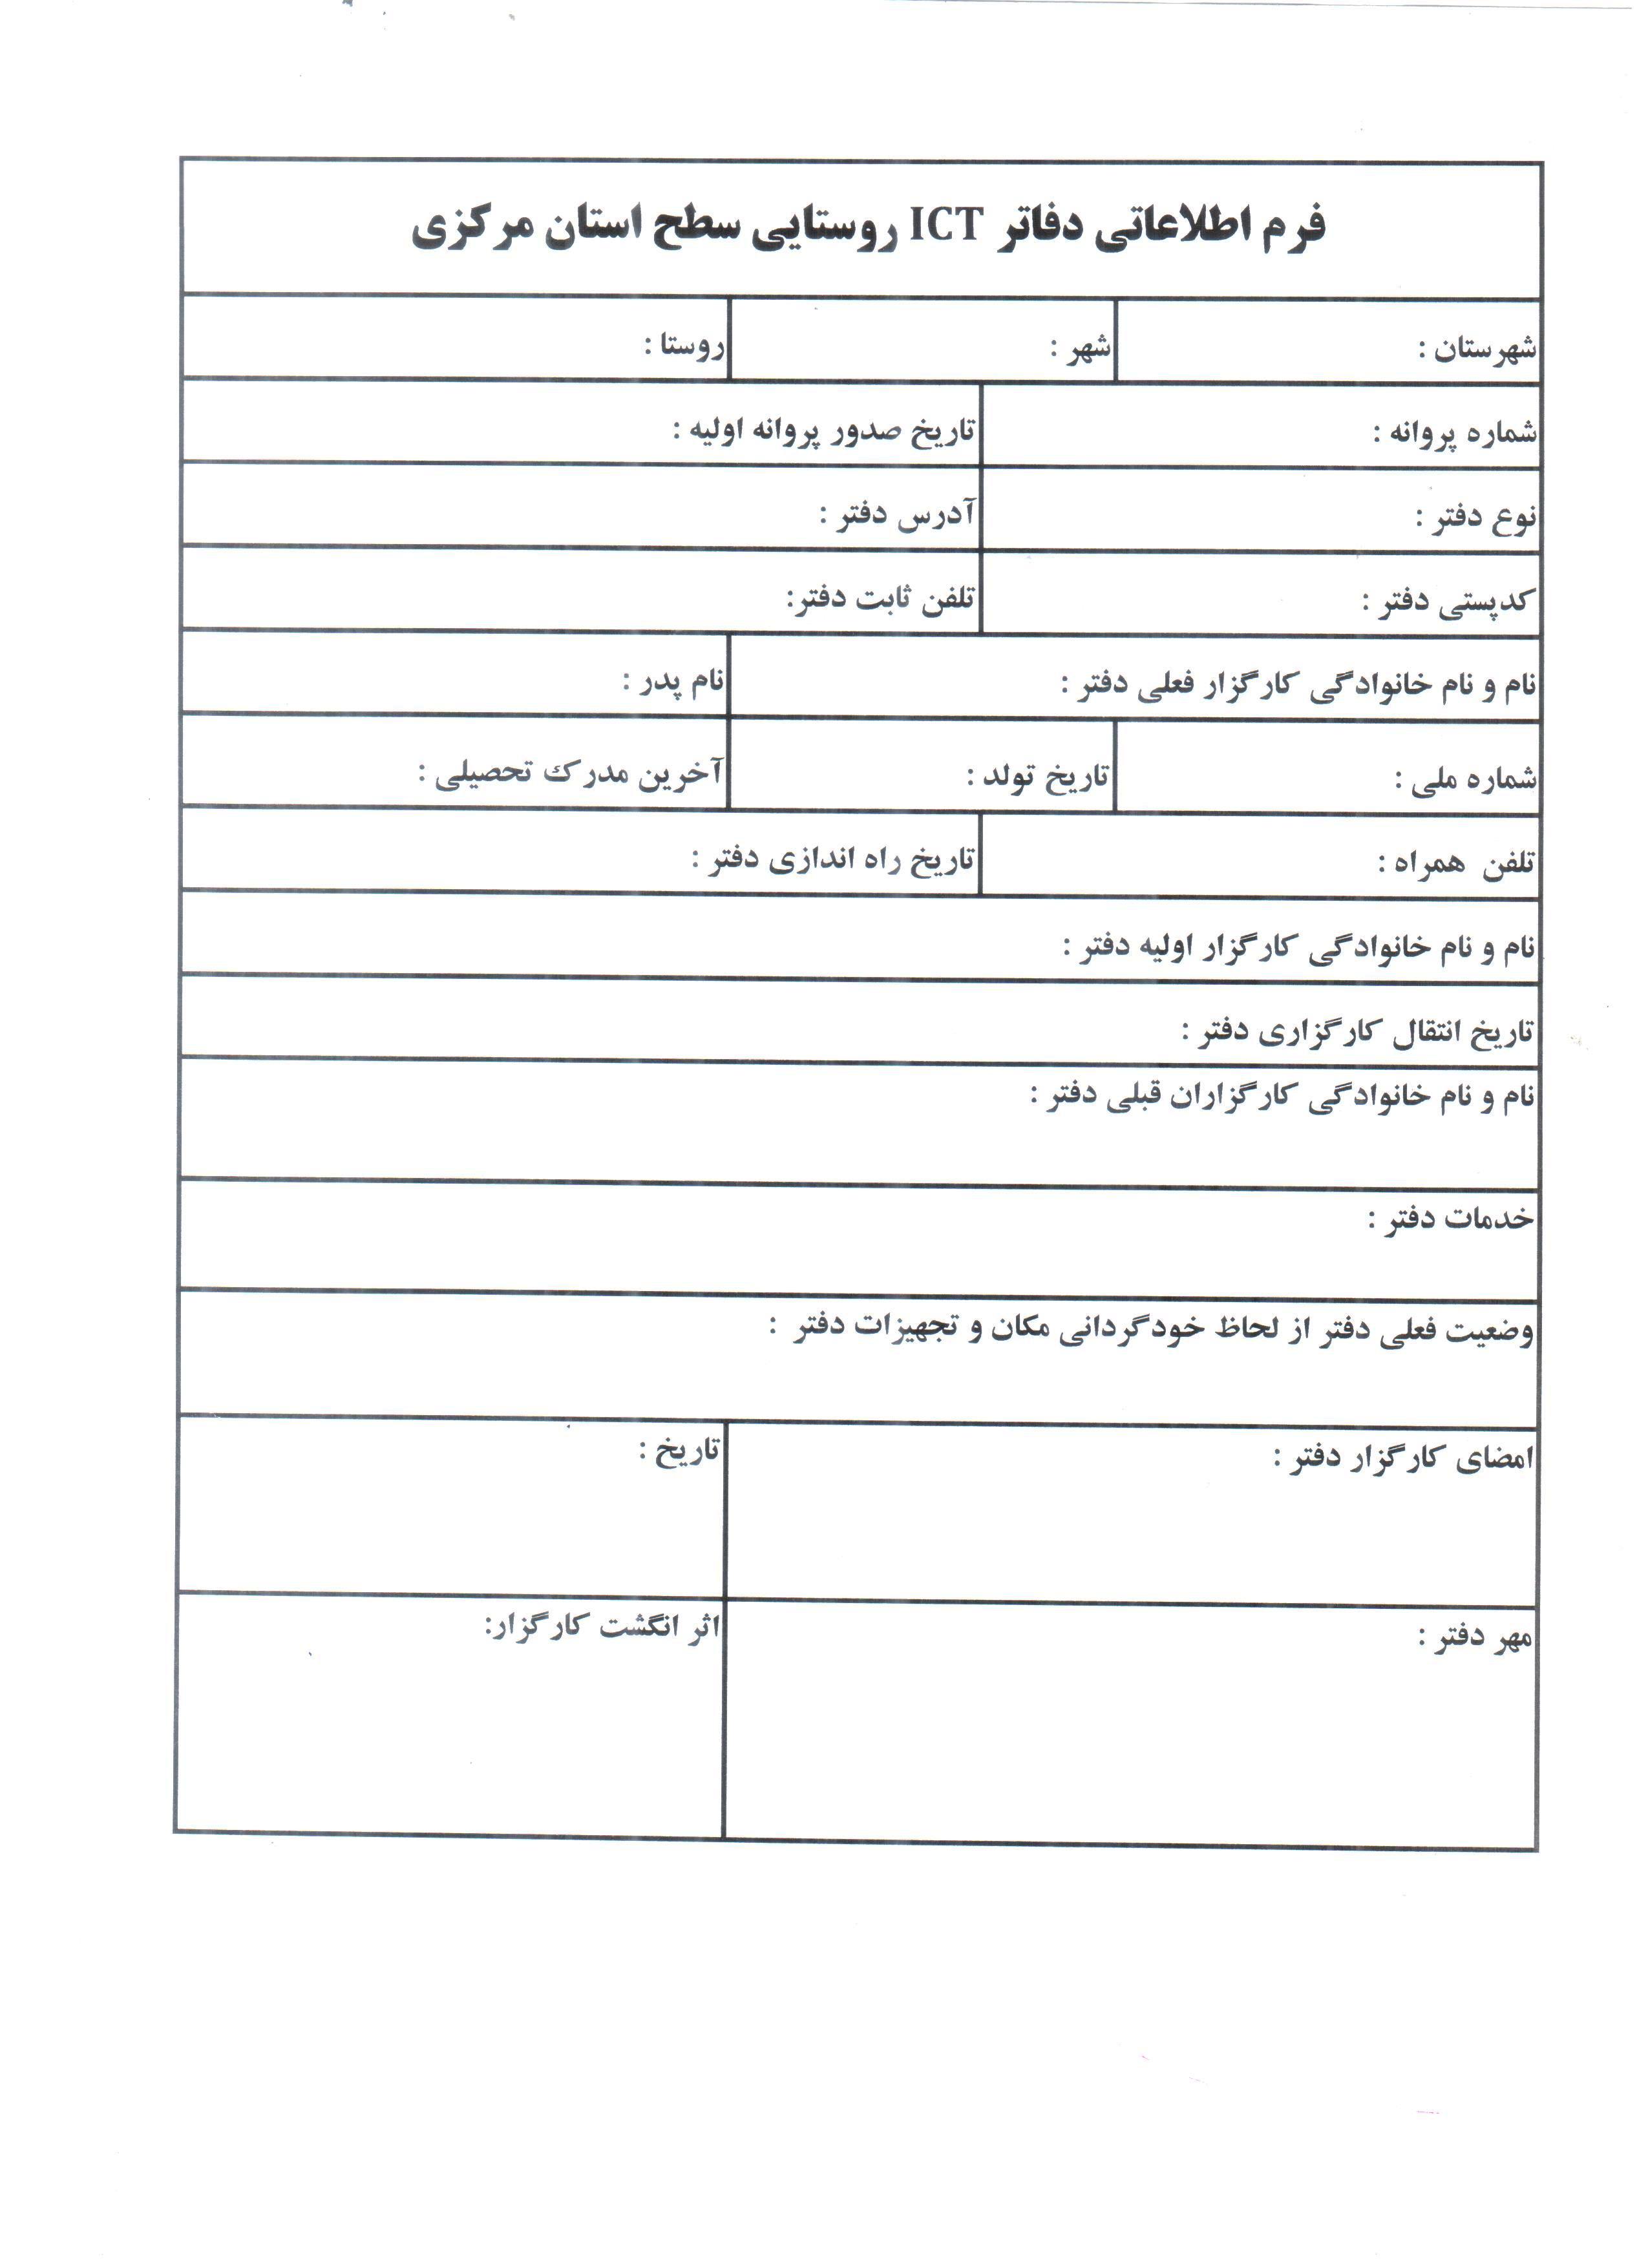 فرم اطلاعاتی دفاتر ICT روستایی سطح استان مرکزی
شهرستان : شهر : روستا :
شماره پروانه : تاریخ صدور پروانه اولیه :
نوع دفتر : آدرس دفتر :
کدپستی دفتر : تلفن ثابت دفتر:
نام و نام خانوادگی کارگزار فعلی دفتر : نام پدر :
شماره ملی : تاریخ تولد : آخرین مدرک تحصیلی :
تلفن همراه : تاریخ راه اندازی دفتر :
نام و نام خانوادگی کارگزار اولیه دفتر :
تاریخ انتقال کارگزاری دفتر :
نام و نام خانوادگی کارگزاران قبلی دفتر :
خدمات دفتر :
وضعیت فعلی دفتر از لحاظ خودگردانی مکان و تجهیزات دفتر :
امضای کارگزار دفتر : تاریخ :
مهر دفتر : اثر انگشت کارگزار: